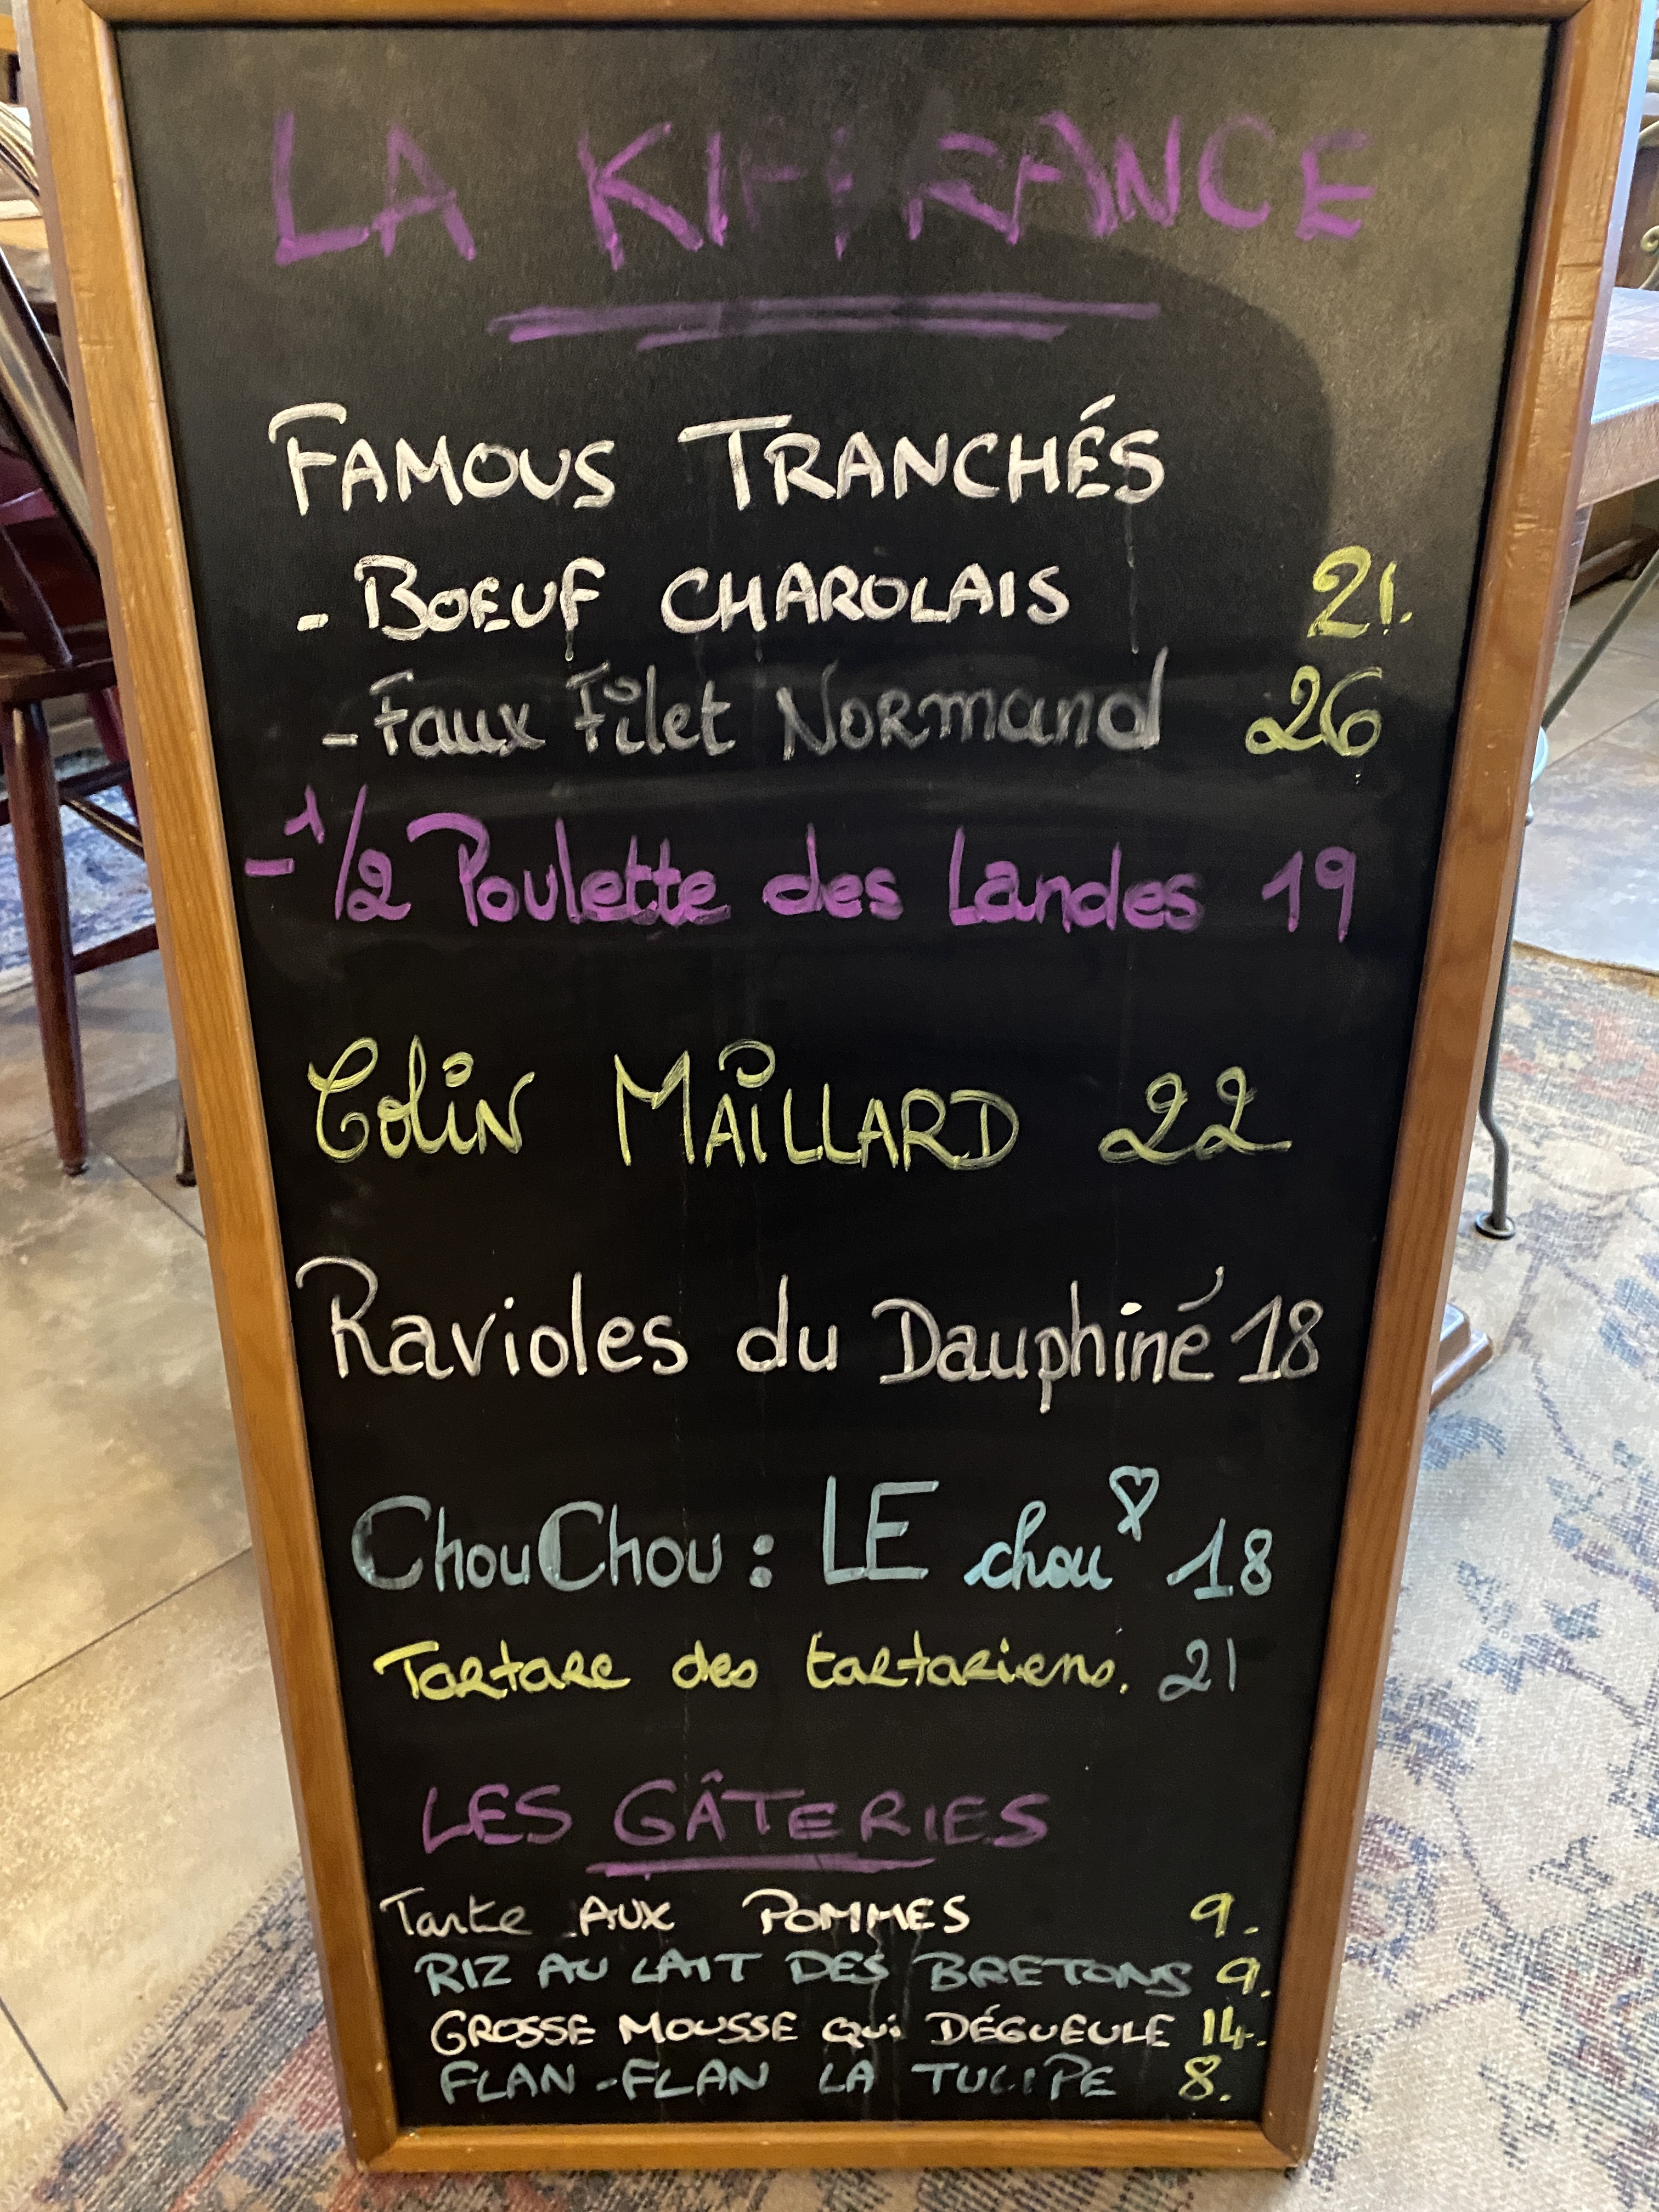 LA KIFFRANCE
FAMOUS TRANCHÉS
- BOEUF CHAROLAIS 21.
- Faux Filet Normand 26
- 1/2 Poulette des Landes 19
Colin MAiLLARD 22
Ravioles du Dauphiné 18
ChouChou : LE chou 18
Tartare des tartariens. 21
LES GÂTERIES
Tarte AUX POMMES 9.
RIZ AU LAIT DES BRETONS 9.
GROSSE MOUSSE Qui DÉGUEULE 14.
FLAN-FLAN LA TULIPE 8.